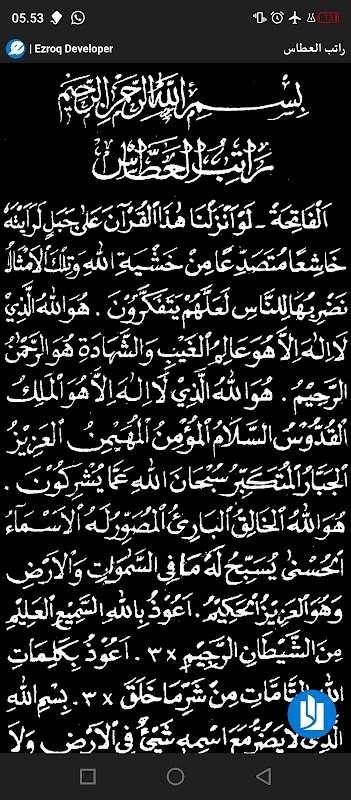 05.53
13
| Ezroq Developer
راتب العطاس
بِسْمِ اللهِ الرَّحْمٰنِ الرَّحِيْمِ
رَاتِبُ الْعَطَّاسِ
اَلْفَاتِحَةْ ـ لَوْ اَنْزَلْنَا هٰذَا الْقُرْآنَ عَلىٰ جَبَلٍ لَرَاَيْتَهُ
خَاشِعًا مُتَصَدِّعًا مِنْ خَشْيَةِ اللهِ وَتِلْكَ الْاَمْثَالُ
نَضْرِبُهَا لِلنَّاسِ لَعَلَّهُمْ يَتَفَكَّرُوْنَ . هُوَ اللهُ الَّذِيْ
لَا اِلٰهَ اِلَّا هُوَ عَالِمُ الْغَيْبِ وَالشَّهَادَةِ هُوَ الرَّحْمٰنُ
الرَّحِيْمُ . هُوَ اللهُ الَّذِيْ لَا اِلٰهَ اِلَّا هُوَ الْمَلِكُ
الْقُدُّوْسُ السَّلَامُ الْمُؤْمِنُ الْمُهَيْمِنُ الْعَزِيْزُ
الْجَبَّارُ الْمُتَكَبِّرُ سُبْحَانَ اللهِ عَمَّا يُشْرِكُوْنَ .
هُوَ اللهُ الْخَالِقُ الْبَارِئُ الْمُصَوِّرُ لَهُ الْاَسْمَآءُ
الْحُسْنىٰ يُسَبِّحُ لَهُ مَا فِى السَّمٰوَاتِ وَالْاَرْضِ
وَهُوَ الْعَزِيْزُ الْحَكِيْمُ . اَعُوْذُ بِاللهِ السَّمِيْعِ الْعَلِيْمِ
مِنَ الشَّيْطَانِ الرَّجِيْمِ ×٣ . اَعُوْذُ بِكَلِمَاتِ
اللهِ التَّامَّاتِ مِنْ شَرِّ مَا خَلَقَ ×٣ . بِسْمِ اللهِ
الَّذِيْ لَا يَضُرُّ مَعَ اسْمِهِ شَيْئٌ فِى الْاَرْضِ وَلَا